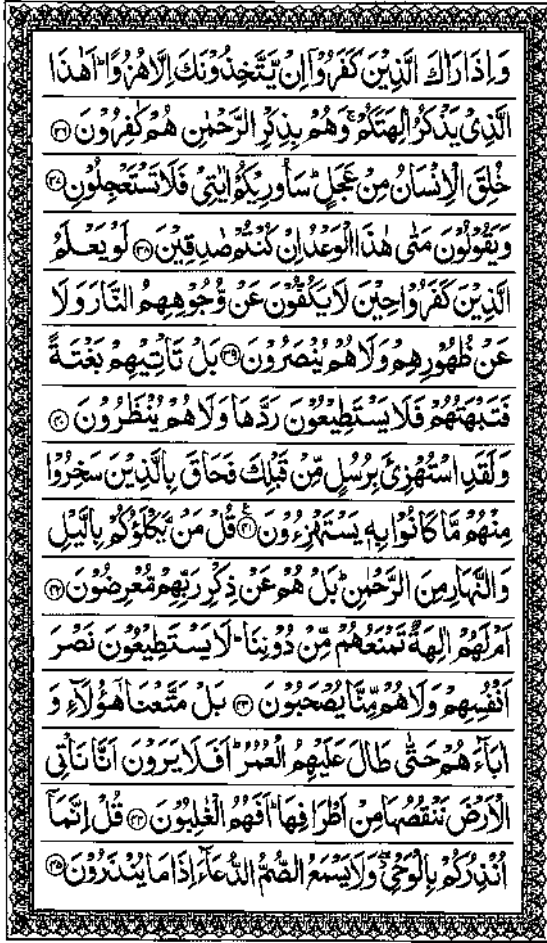 وَاِذَا رَاٰكَ الَّذِيْنَ كَفَرُوْۤا اِنْ يَّتَّخِذُوْنَكَ اِلَّا هُزُوًا ؕ اَهٰذَا
الَّذِيْ يَذْكُرُ اٰلِهَتَكُمْ ۚ وَهُمْ بِذِكْرِ الرَّحْمٰنِ هُمْ كٰفِرُوْنَ ﴿۳۶﴾
خُلِقَ الْاِنْسَانُ مِنْ عَجَلٍ ؕ سَاُورِيْكُمْ اٰيٰتِيْ فَلَا تَسْتَعْجِلُوْنِ ﴿۳۷﴾
وَيَقُوْلُوْنَ مَتٰى هٰذَا الْوَعْدُ اِنْ كُنْتُمْ صٰدِقِيْنَ ﴿۳۸﴾ لَوْ يَعْلَمُ
الَّذِيْنَ كَفَرُوْا حِيْنَ لَا يَكُفُّوْنَ عَنْ وُّجُوْهِهِمُ النَّارَ وَلَا
عَنْ ظُهُوْرِهِمْ وَلَا هُمْ يُنْصَرُوْنَ ﴿۳۹﴾ بَلْ تَاْتِيْهِمْ بَغْتَةً
فَتَبْهَتُهُمْ فَلَا يَسْتَطِيْعُوْنَ رَدَّهَا وَلَا هُمْ يُنْظَرُوْنَ ﴿۴۰﴾
وَلَقَدِ اسْتُهْزِئَ بِرُسُلٍ مِّنْ قَبْلِكَ فَحَاقَ بِالَّذِيْنَ سَخِرُوْا
مِنْهُمْ مَّا كَانُوْا بِهٖ يَسْتَهْزِءُوْنَ ﴿۴۱﴾ قُلْ مَنْ يَّكْلَؤُكُمْ بِالَّيْلِ
وَالنَّهَارِ مِنَ الرَّحْمٰنِ ؕ بَلْ هُمْ عَنْ ذِكْرِ رَبِّهِمْ مُّعْرِضُوْنَ ﴿۴۲﴾
اَمْ لَهُمْ اٰلِهَةٌ تَمْنَعُهُمْ مِّنْ دُوْنِنَا ؕ لَا يَسْتَطِيْعُوْنَ نَصْرَ
اَنْفُسِهِمْ وَلَا هُمْ مِّنَّا يُصْحَبُوْنَ ﴿۴۳﴾ بَلْ مَتَّعْنَا هٰۤؤُلَآءِ وَ
اٰبَآءَهُمْ حَتّٰى طَالَ عَلَيْهِمُ الْعُمُرُ ؕ اَفَلَا يَرَوْنَ اَنَّا نَاْتِي
الْاَرْضَ نَنْقُصُهَا مِنْ اَطْرَافِهَا ؕ اَفَهُمُ الْغٰلِبُوْنَ ﴿۴۴﴾ قُلْ اِنَّمَاۤ
اُنْذِرُكُمْ بِالْوَحْيِ ۖ وَلَا يَسْمَعُ الصُّمُّ الدُّعَآءَ اِذَا مَا يُنْذَرُوْنَ ﴿۴۵﴾